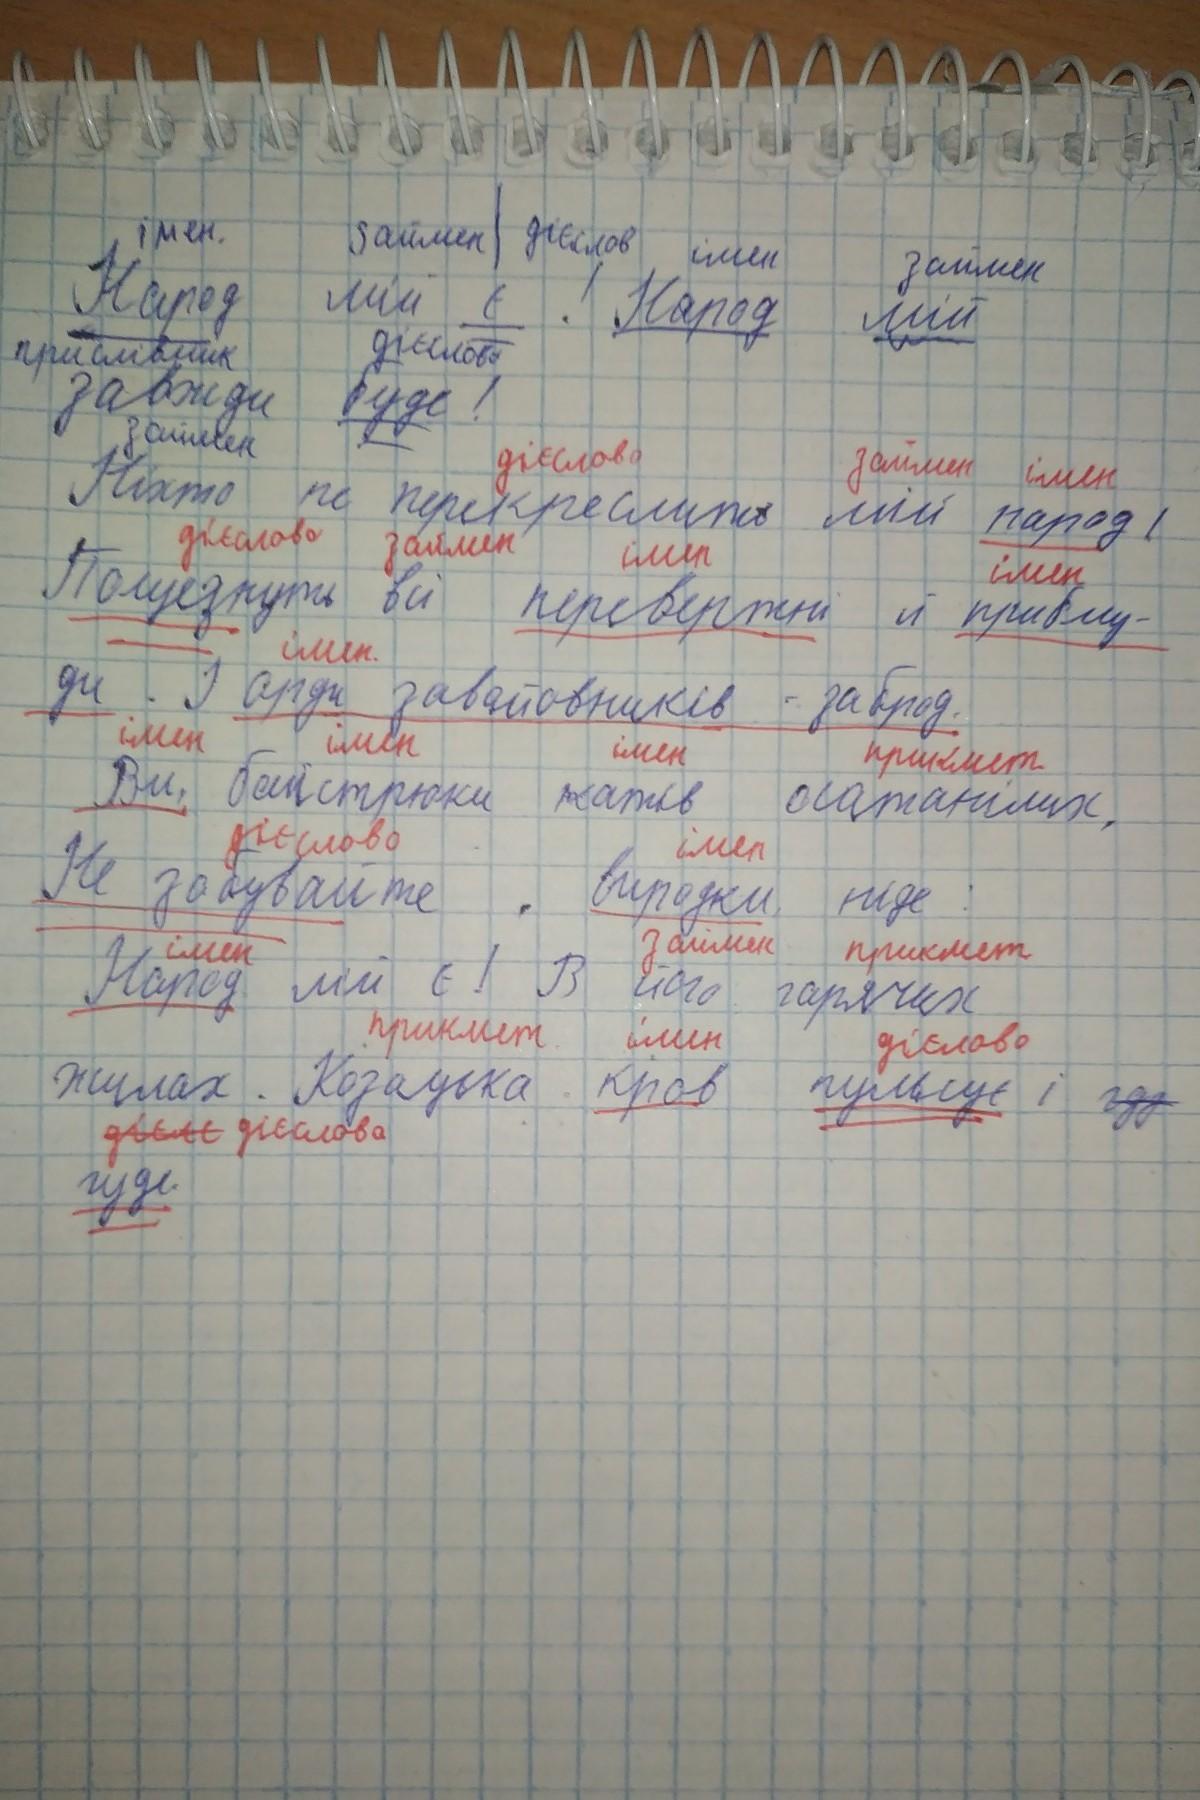 імен. займен дієслов імен займен
Народ мій є ! Народ мій
прислівник дієслово
завжди буде !
займен дієслово займен імен
Ніхто не перекреслить мій народ !
дієслово займен імен імен
Пощезнуть всі перевертні й приблу-
імен.
ди . І орди завойовників - заброд.
імен імен імен прикмет
Ви, байстрюки катів осатанілих,
дієслово імен
Не забувайте , виродки, ніде :
імен займен прикмет
Народ мій є ! В його гарячих
прикмет імен дієлово
жилах . Козацька кров пульсує і
дієслова
гуде.